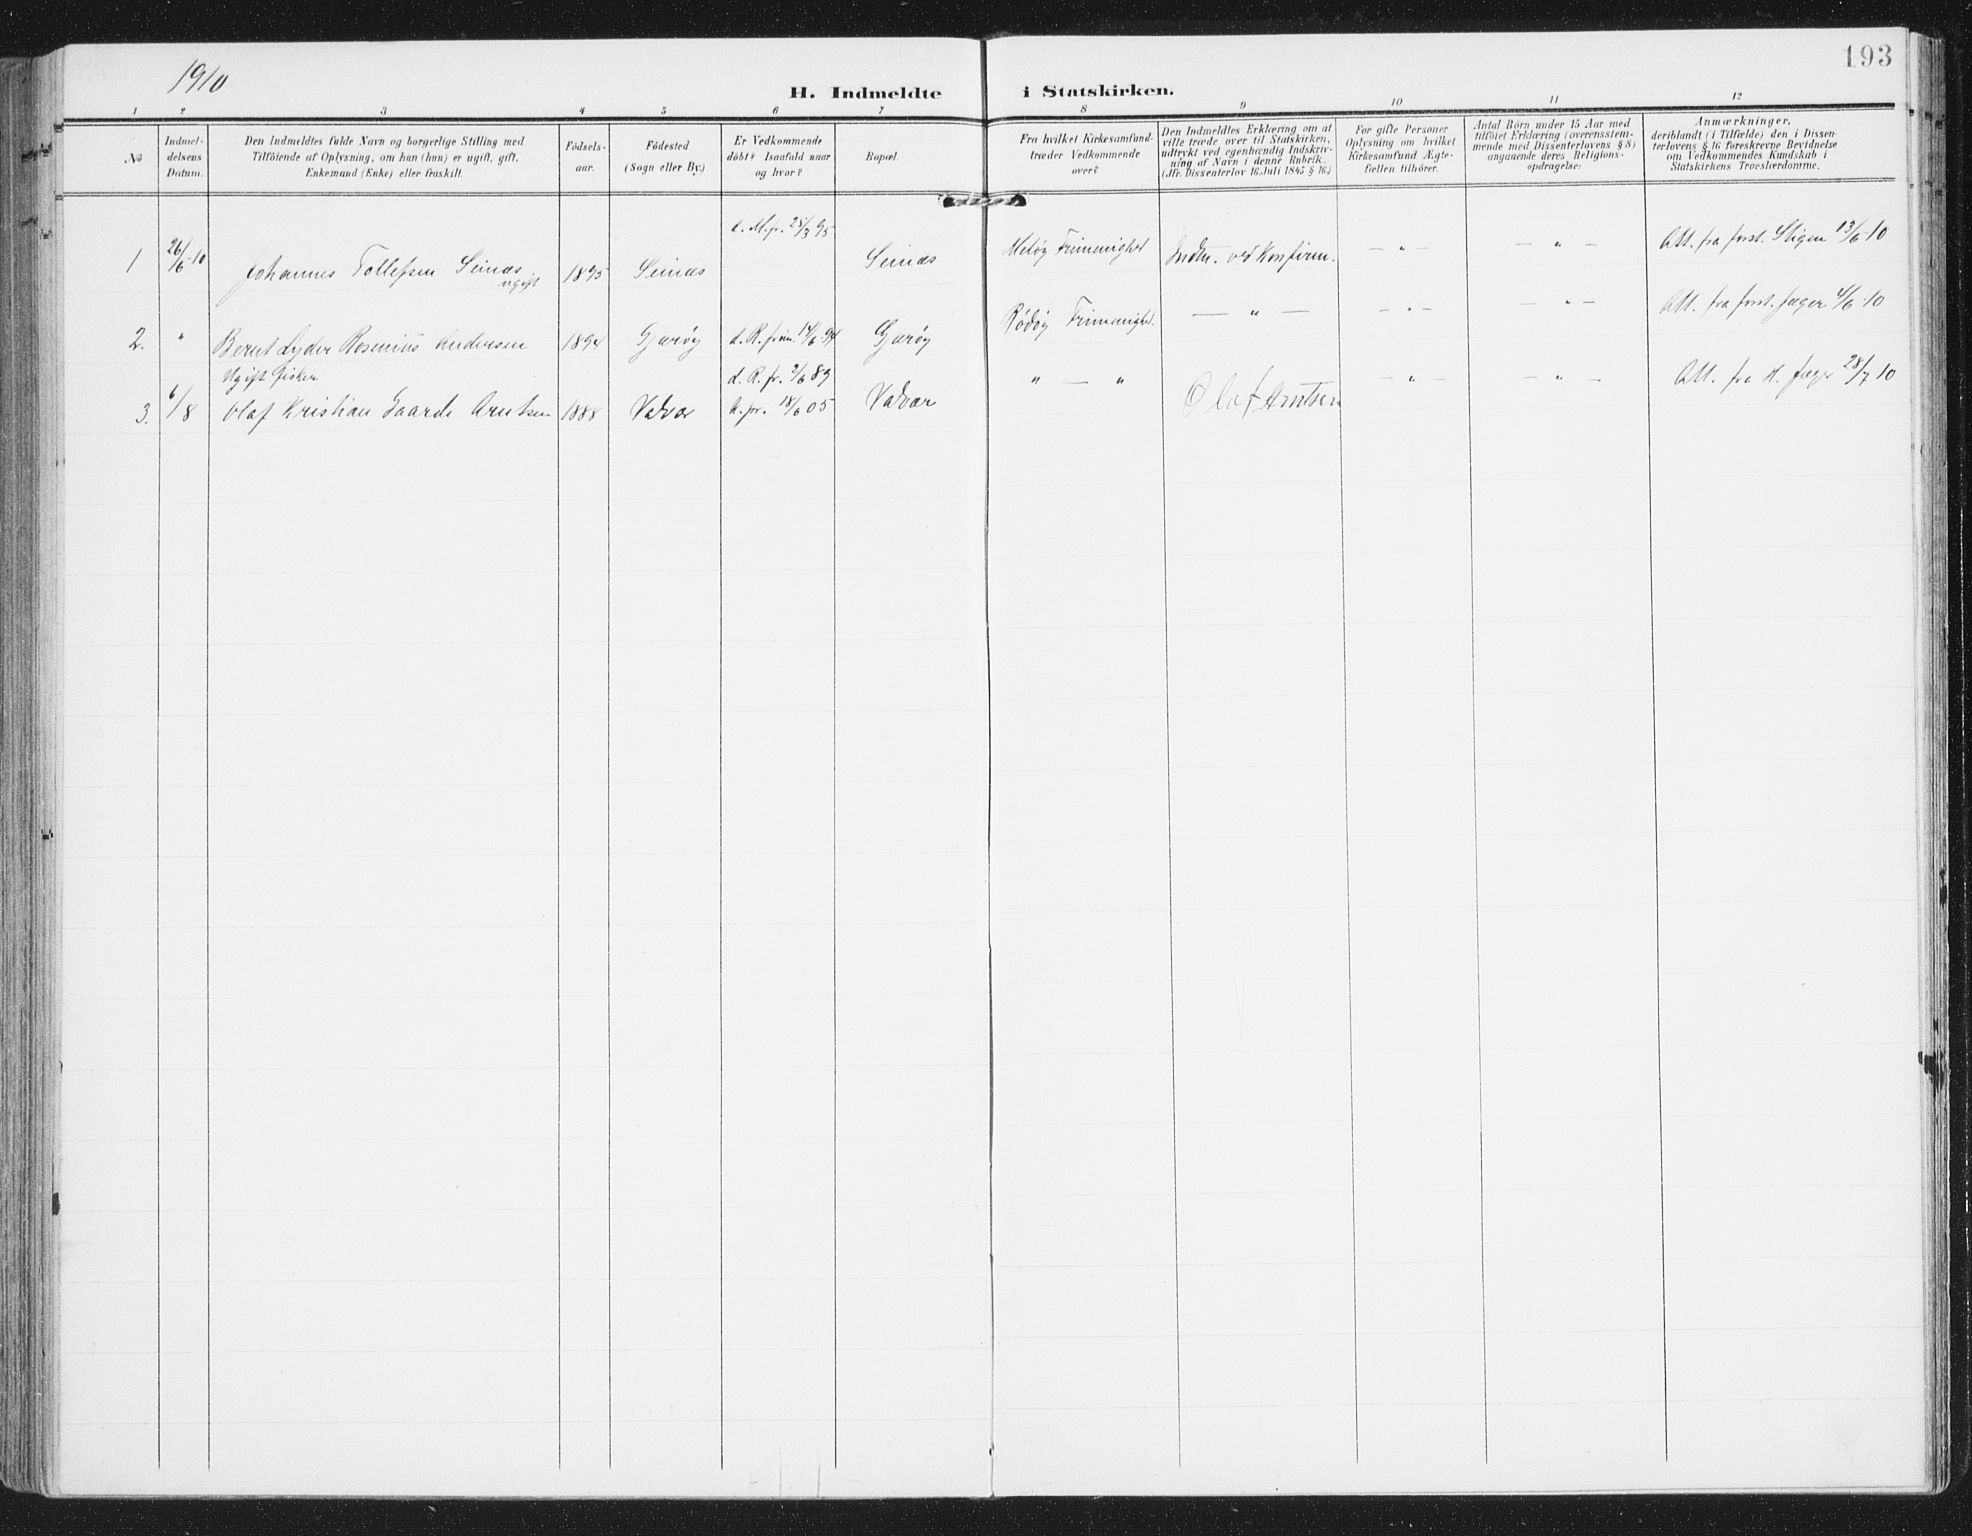 193
1910
H. Indmeldte i Statskirken.
1 2 3 4 5 6 7 8 9 10 11 12
No
Indmel-
delsens
Datum.
Den Indmeldtes fulde Navn og borgerlige Stilling med
Tilföiende af Oplysning, om han (hun) er ugift, gift,
Enkemand (Enke) eller fraskilt.
Födsels-
aar.
Födested
(Sogn eller By.)
Er Vedkommende
döbt? Isaafald naar
og hvor?
Bopæl.
Fra hvilket Kirkesamfund
træder Vedkommende
over?
Den Indmeldtes Erklæring om at
ville træde over til Statskirken,
udtrykt ved egenhændig Indskriv-
ning af Navn i denne Rubrik.
(Jfr. Dissenterlov 16 Juli 1845 § 16.)
For gifte Personer
Oplysning om hvilket
Kirkesamfund Ægte-
fællen tilhörer.
Antal Börn under 15 Aar med
tilföiet Erklæring (overensstem-
mende med Dissenterlovens § 8)
angaaende deres Religions-
opdragelse:
Anmærkninger,
deriblandt (i Tilfælde) den i Dissen-
terlovens § 16 foreskrevne Bevidnelse
om Vedkommendes Kundskab i
Statskirkens Troeslærdomme.
d. M. fr. 25/3 95
1 26/6-10 Johannes Tollefsen Seinæs 1895 Seinæs Seinæs Meløy Frimenighet Indm. ved Konfirm. — " — — " — Att. fra forst. Stigen 13/6-10
ugift
2. " Bernt Lyder Rosenius Andersen 1894 Gjærøy d. R. frim. 14/6 94 Gjærøy Rödöy Frimenighet. — " — — " — — " — Att. fra forst. Jæger 4/6-10
Ugift Fisker d. R. fr. 2/6 89
3. 6/8 Olaf Kristian Gaarde Arntsen 1888 Valvær k. fr. 18/6 05 Valvær " — " Olaf Arntsen — " — — " — Att. fra H. Jæger 28/7 10